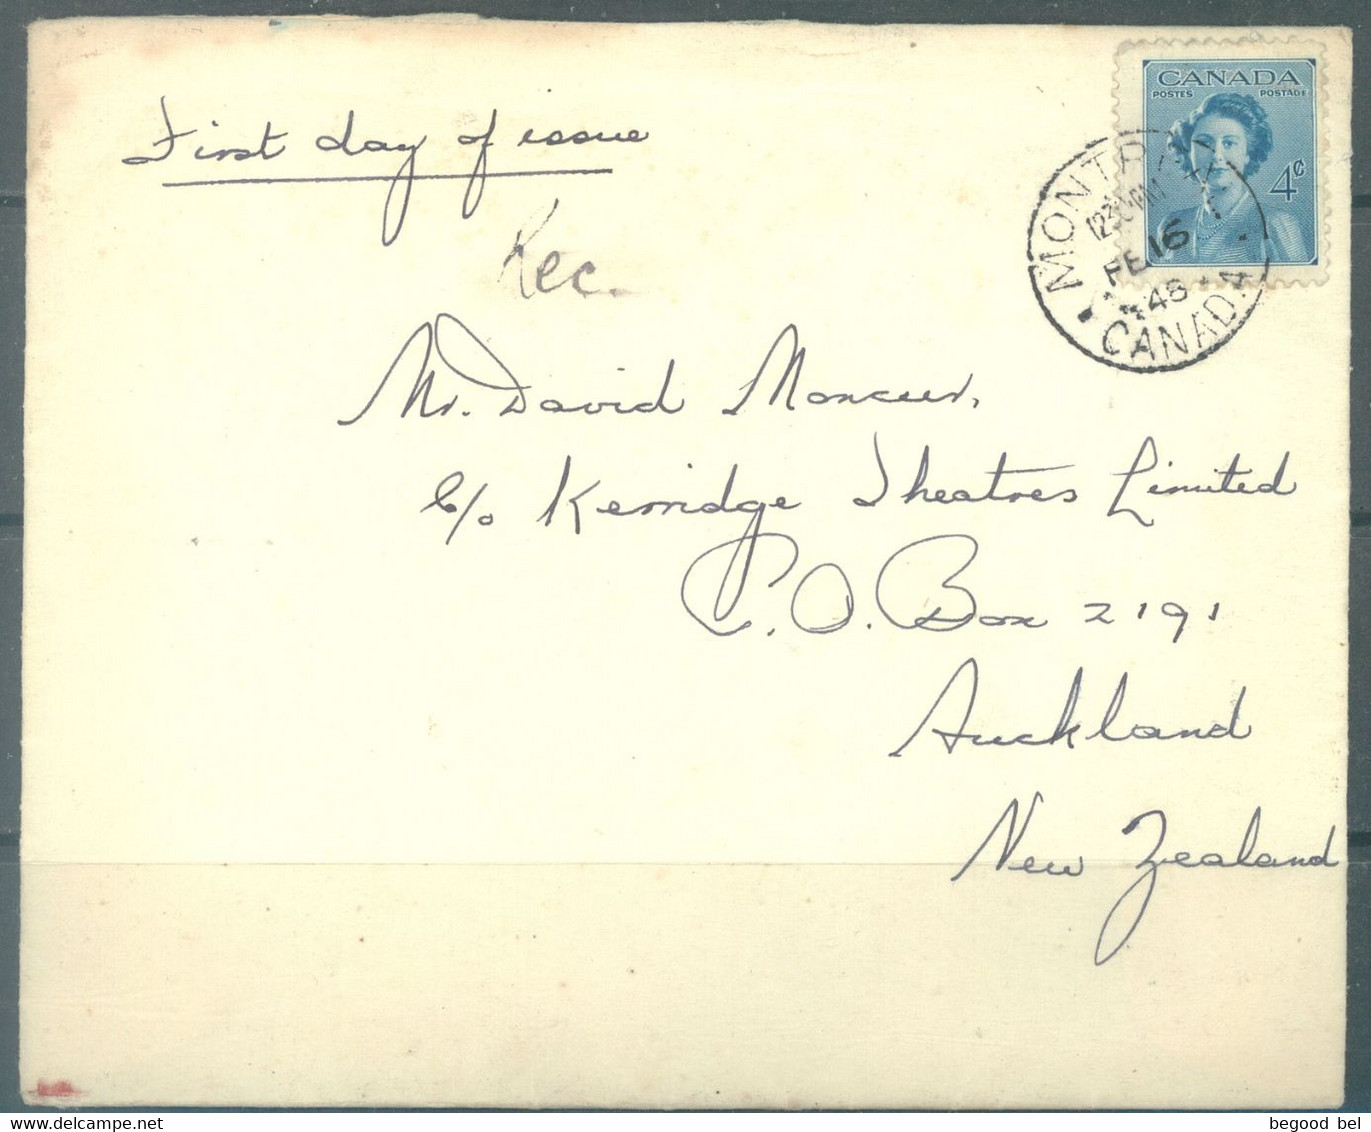 First day of issue
Rec.
CANADA
POSTES POSTAGE
4¢
MONTREAL
FE 16
48
CANADA
Mr. David Moncur,
c/o Kerridge Theatres Limited
P.O. Box 2191
Auckland
New Zealand
begood bel